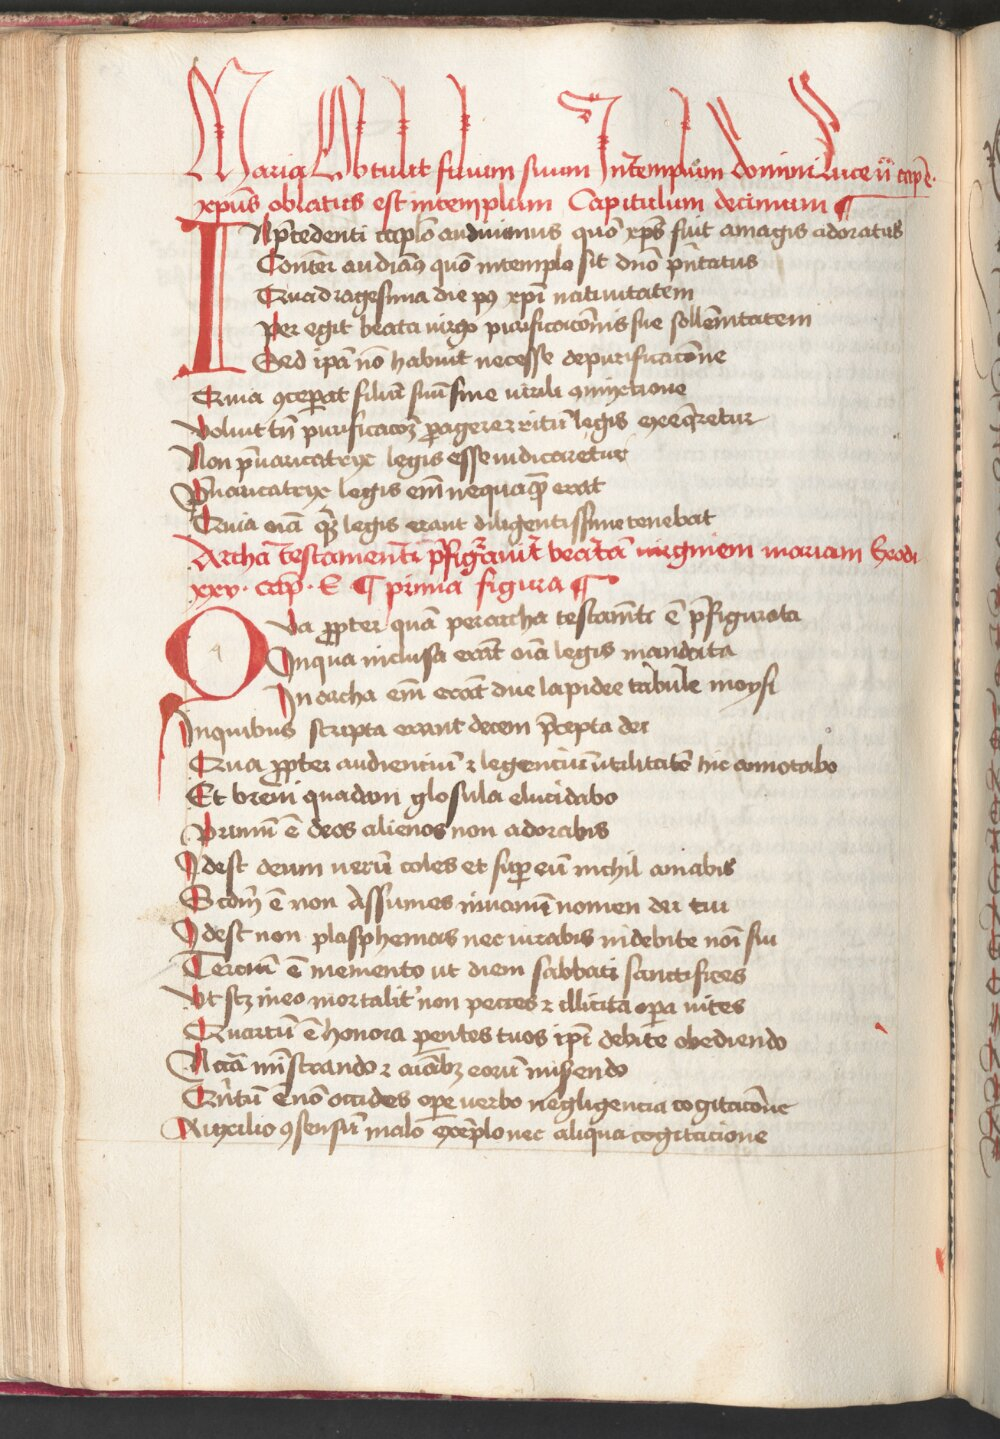 Maria Obtulit filium suum In templum domini Luce ii cap̄e.
xp̄us oblatus est in templum Capitulum decimum ¶
IN p̄cedenti cap̄lo audiuimus quō xp̄s fuit amagis adoratus
Conseq̄nter audiam9 quō in templo sit dn̄o p̄n̄tatus
Quadragesima die p9 xp̄i natiuitatem
Per egit beata uirgo purificacōis sue sollēnitatem
Sed ip̄a nō habuit necesse de purificacōne
Quia 9ceperat filiū suū sine uirili 9mixtione
Voluit tn̄ purificacōꝫ p̱agere ⁊ ritū legis exeq̄retur
Non p̄uaricatryx legis esse iudicaretur
P̄uaricatryx legis em̄ nequaq̄ꝫ erat
Quia oīa q̄ꝫ legis erant diligentissime tenebat
Archa testamenti p̄figurauit beatā uirginem mariam Exodi
xxv. cap̄. E ¶ prima figura ¶
Qua p̱pter quam per archa testamēti ē p̄figurata
In qua inclusa erāt oīa legis mandata
In archa em̄ erāt due lapidee tabule moysi
In quibus scripta erant decem p̄cepta dei
Qua p̱pter audienciū ⁊ legenciū utilitatē hic annotabo
Et breui quadam glosula elucidabo
Primū ē deos alienos non adorabis
Idest deum uerū coles et sup̱ eū nichil amabis
Scdm̄ ē non Assumes in uanū nomen dei tui
Idest non plasphemas nec iurabis indebite nōi sui
Terciū ē memento ut diem sabbati sanctifices
Ut scꝫ in eo mortalit' non pecces ⁊ illicita op̱a uites
Quartū ē honora p̱entes tuos ip̄i debite obediendo
Nccīa mīstrando ⁊ aīabꝫ eorū miserendo
Qn̄tū ē nō occides ope uerbo negligencia cogitacōne
Auxilio 9sensū malo exēplo nec aliqua cogitacione